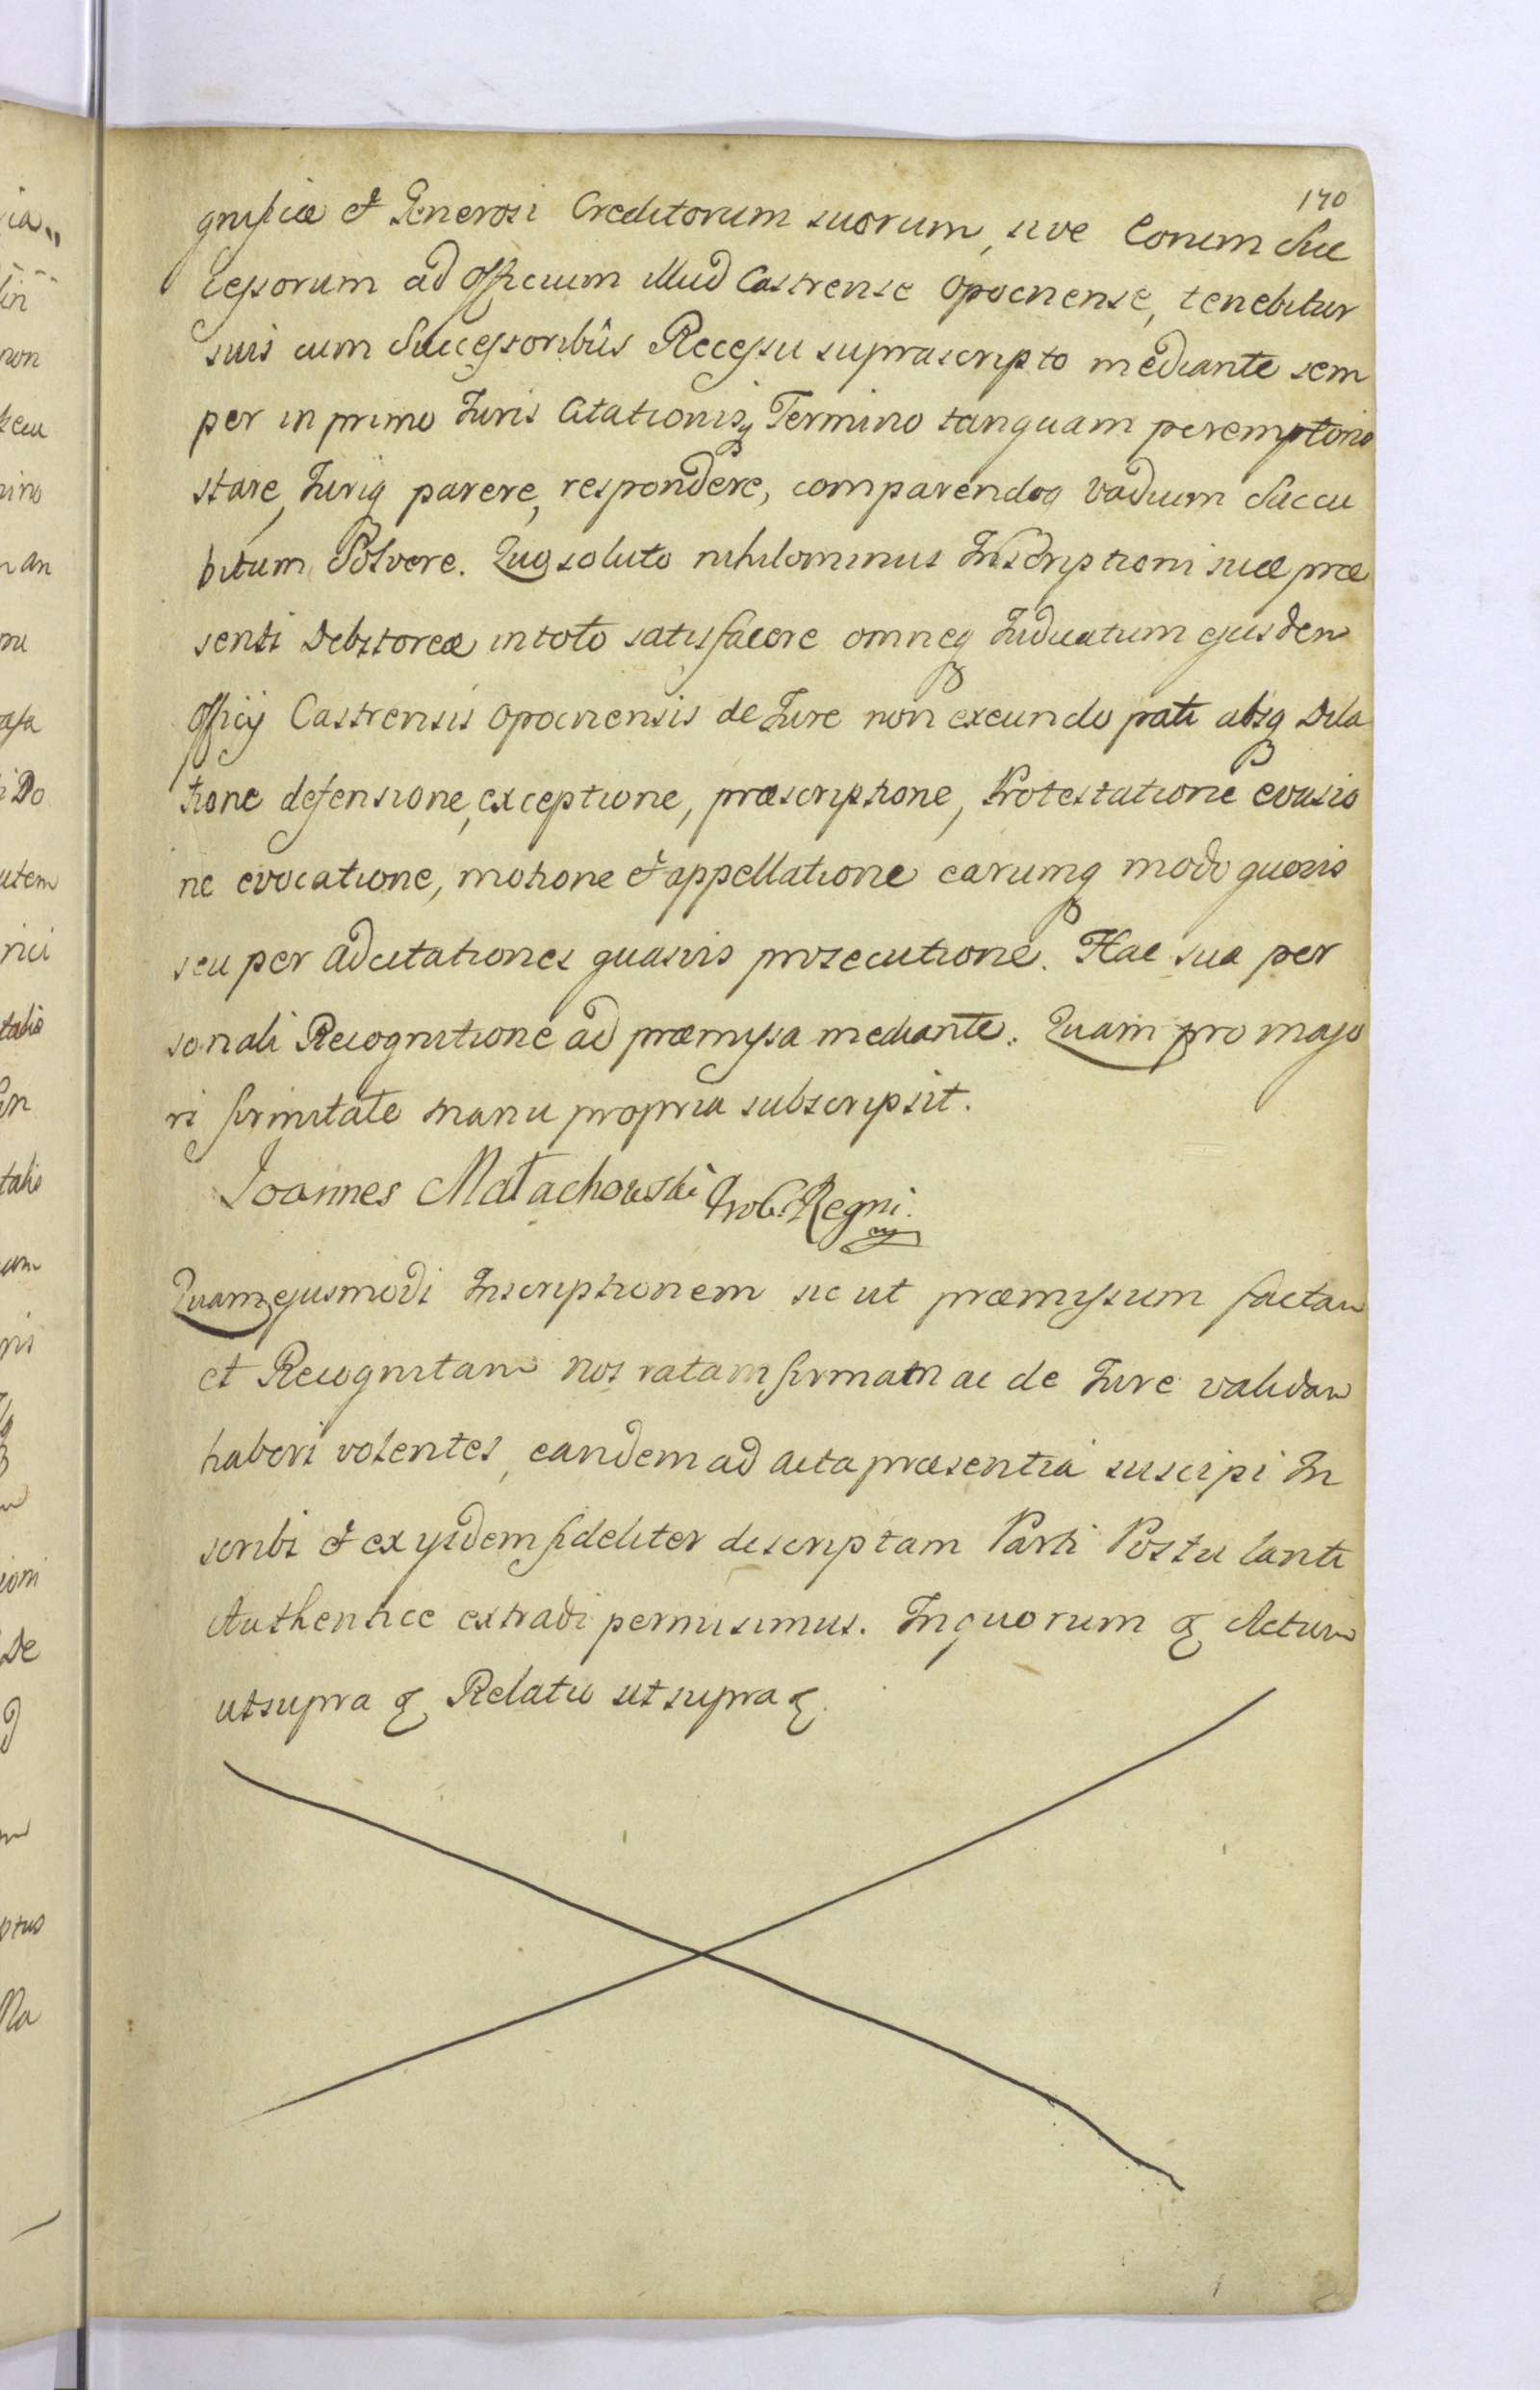 170
gnificæ et Generosi Creditorum suorum, sive Eorum Suc
cessorum ad Officium illud Castrense Opocnense, tenebitur
suis cum Successoribûs Recessu suprascripto mediante sem
per in primo Juris Citationisq Termino tanquam peremptorio
stare, Juriq parere, respondere, comparendoq Vadium Succu
bitum Solvere. Quo soluto nihilominus Inscriptioni suæ præ
senti Debitoreæ in toto satisfacere omneq Judicatum ejusdem
Officij Castrensis Opocnensis de Jure non exeundo pati absq Dila
tione defensione, exceptione, præscriptione, Protestatione evasio
ne evocatione, motione et appellatione earumq modo quovis
seu per adcitationes quasvis prosecutione. Hac sua per
sonali Recognitione ad præmissa mediante. Quam pro majo
ri firmitate manu propria subscripsit.
Joannes Małachowski Regni.
Quam ejusmodi Inscriptionem sic ut præmissum factam
et Recognitam nos ratam firmam ac de Jure validam
haberi volentes, eandem ad acta præsentia suscipi In
scribi et ex ijsdem fideliter descriptam Parti Postulanti
Authentice extradi permisimus. In quorum &. Actum
ut supra &. Relatio ut supra &.